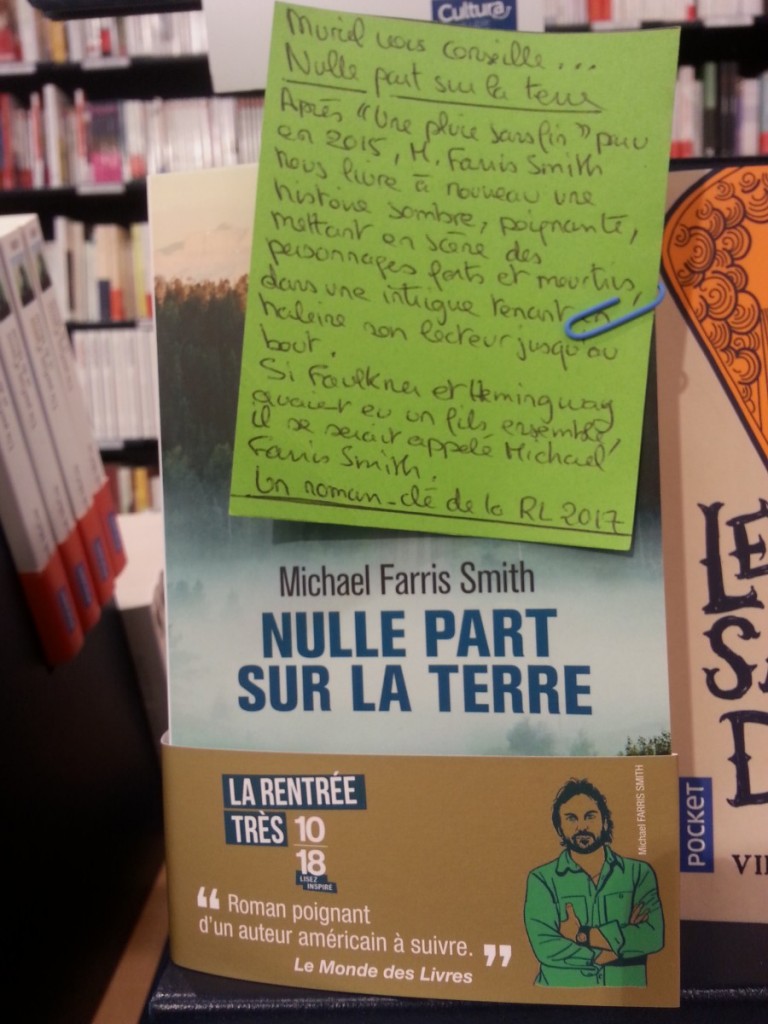 Cultura
Muriel vous conseille...
Nulle part sur la terre
Après "Une pluie sans fin" paru
en 2015, M. Farris Smith
nous livre à nouveau une
histoire sombre, poignante,
mettant en scène des
personnages forts et meurtris,
dans une intrigue tenant en
haleine son lecteur jusqu'au
bout.
Si Faulkner et Hemingway
avaient eu un fils ensemble,
il se serait appelé Michael
Farris Smith.
Un roman-clé de la RL 2017
Michael Farris Smith
NULLE PART
SUR LA TERRE
LA RENTRÉE
TRÈS 10
18
LISEZ
INSPIRÉ
“ Roman poignant
d'un auteur américain à suivre. ”
Le Monde des Livres
Michael FARRIS SMITH
POCKET